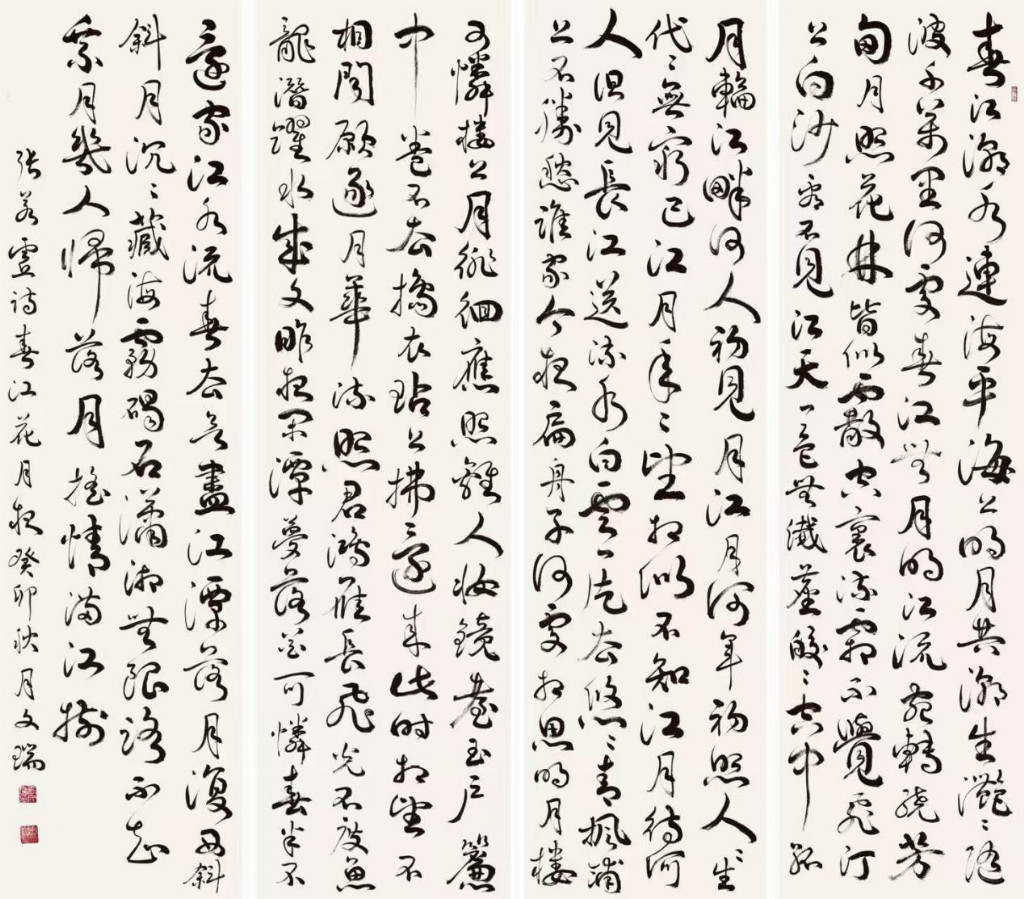 春江潮水連海平海上明月共潮生灔々隨
波千萬里何處春江無月明江流宛轉繞芳
甸月照花林皆似霰空裏流霜不覺飛汀
上白沙看不見江天一色無纖塵皎々空中孤
月輪江畔何人初見月江月何年初照人々生
代々無窮已江月年々望相似不知江月待何
人但見長江送流水白雲一片去悠々青楓浦
上不勝愁誰家今夜扁舟子何處相思明月樓
可憐樓上月徘徊應照離人妝鏡臺玉戶簾
中卷不去擣衣砧上拂還來此時相望不
相聞願逐月華流照君鴻雁長飛光不度魚
龍潛躍水成文昨夜閑潭夢落花可憐春半不
還家江水流春去欲盡江潭落月復西斜
斜月沉々藏海霧碣石瀟湘無限路不知
乘月幾人歸落月搖情滿江樹
張若虛詩春江花月夜癸卯秋月文瑞